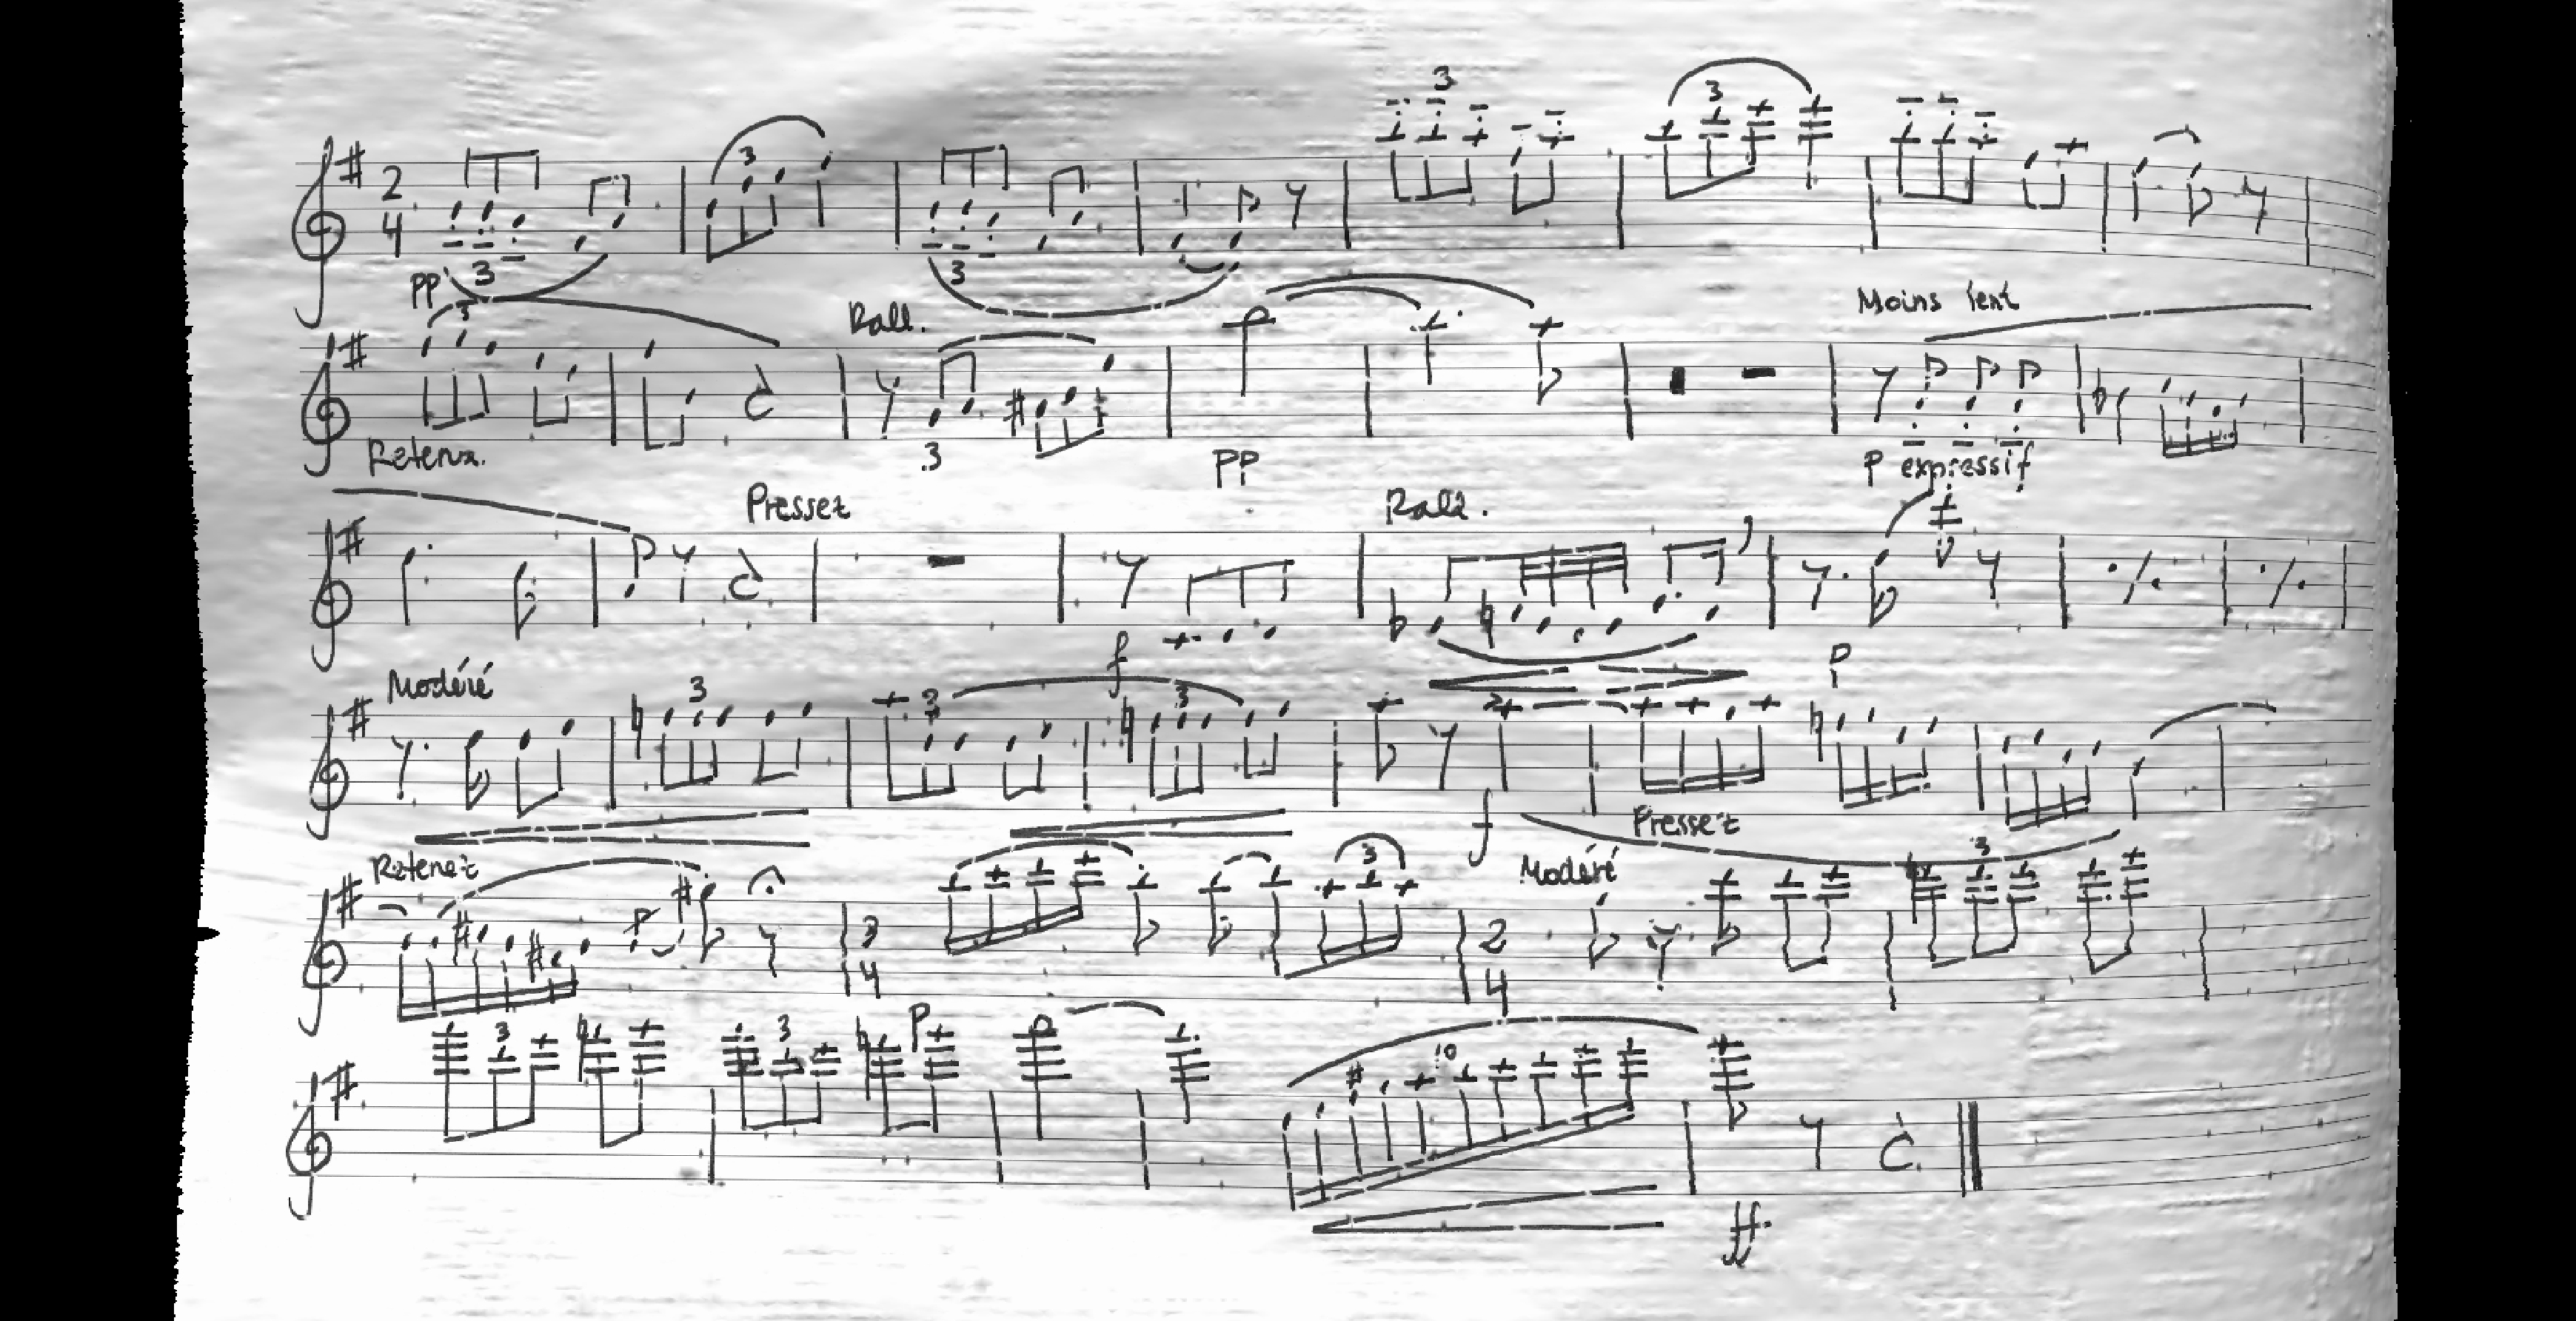 3 3 3
2
4
3
PP 3 3
Rall. Moins lent
3
Retenu. 3 PP P expressif
Pressez Rall.
f P
Modéré
3 3 3
f Pressez
Retenez Modéré
3 3
3
4
2
4
3 3 P
10
ff